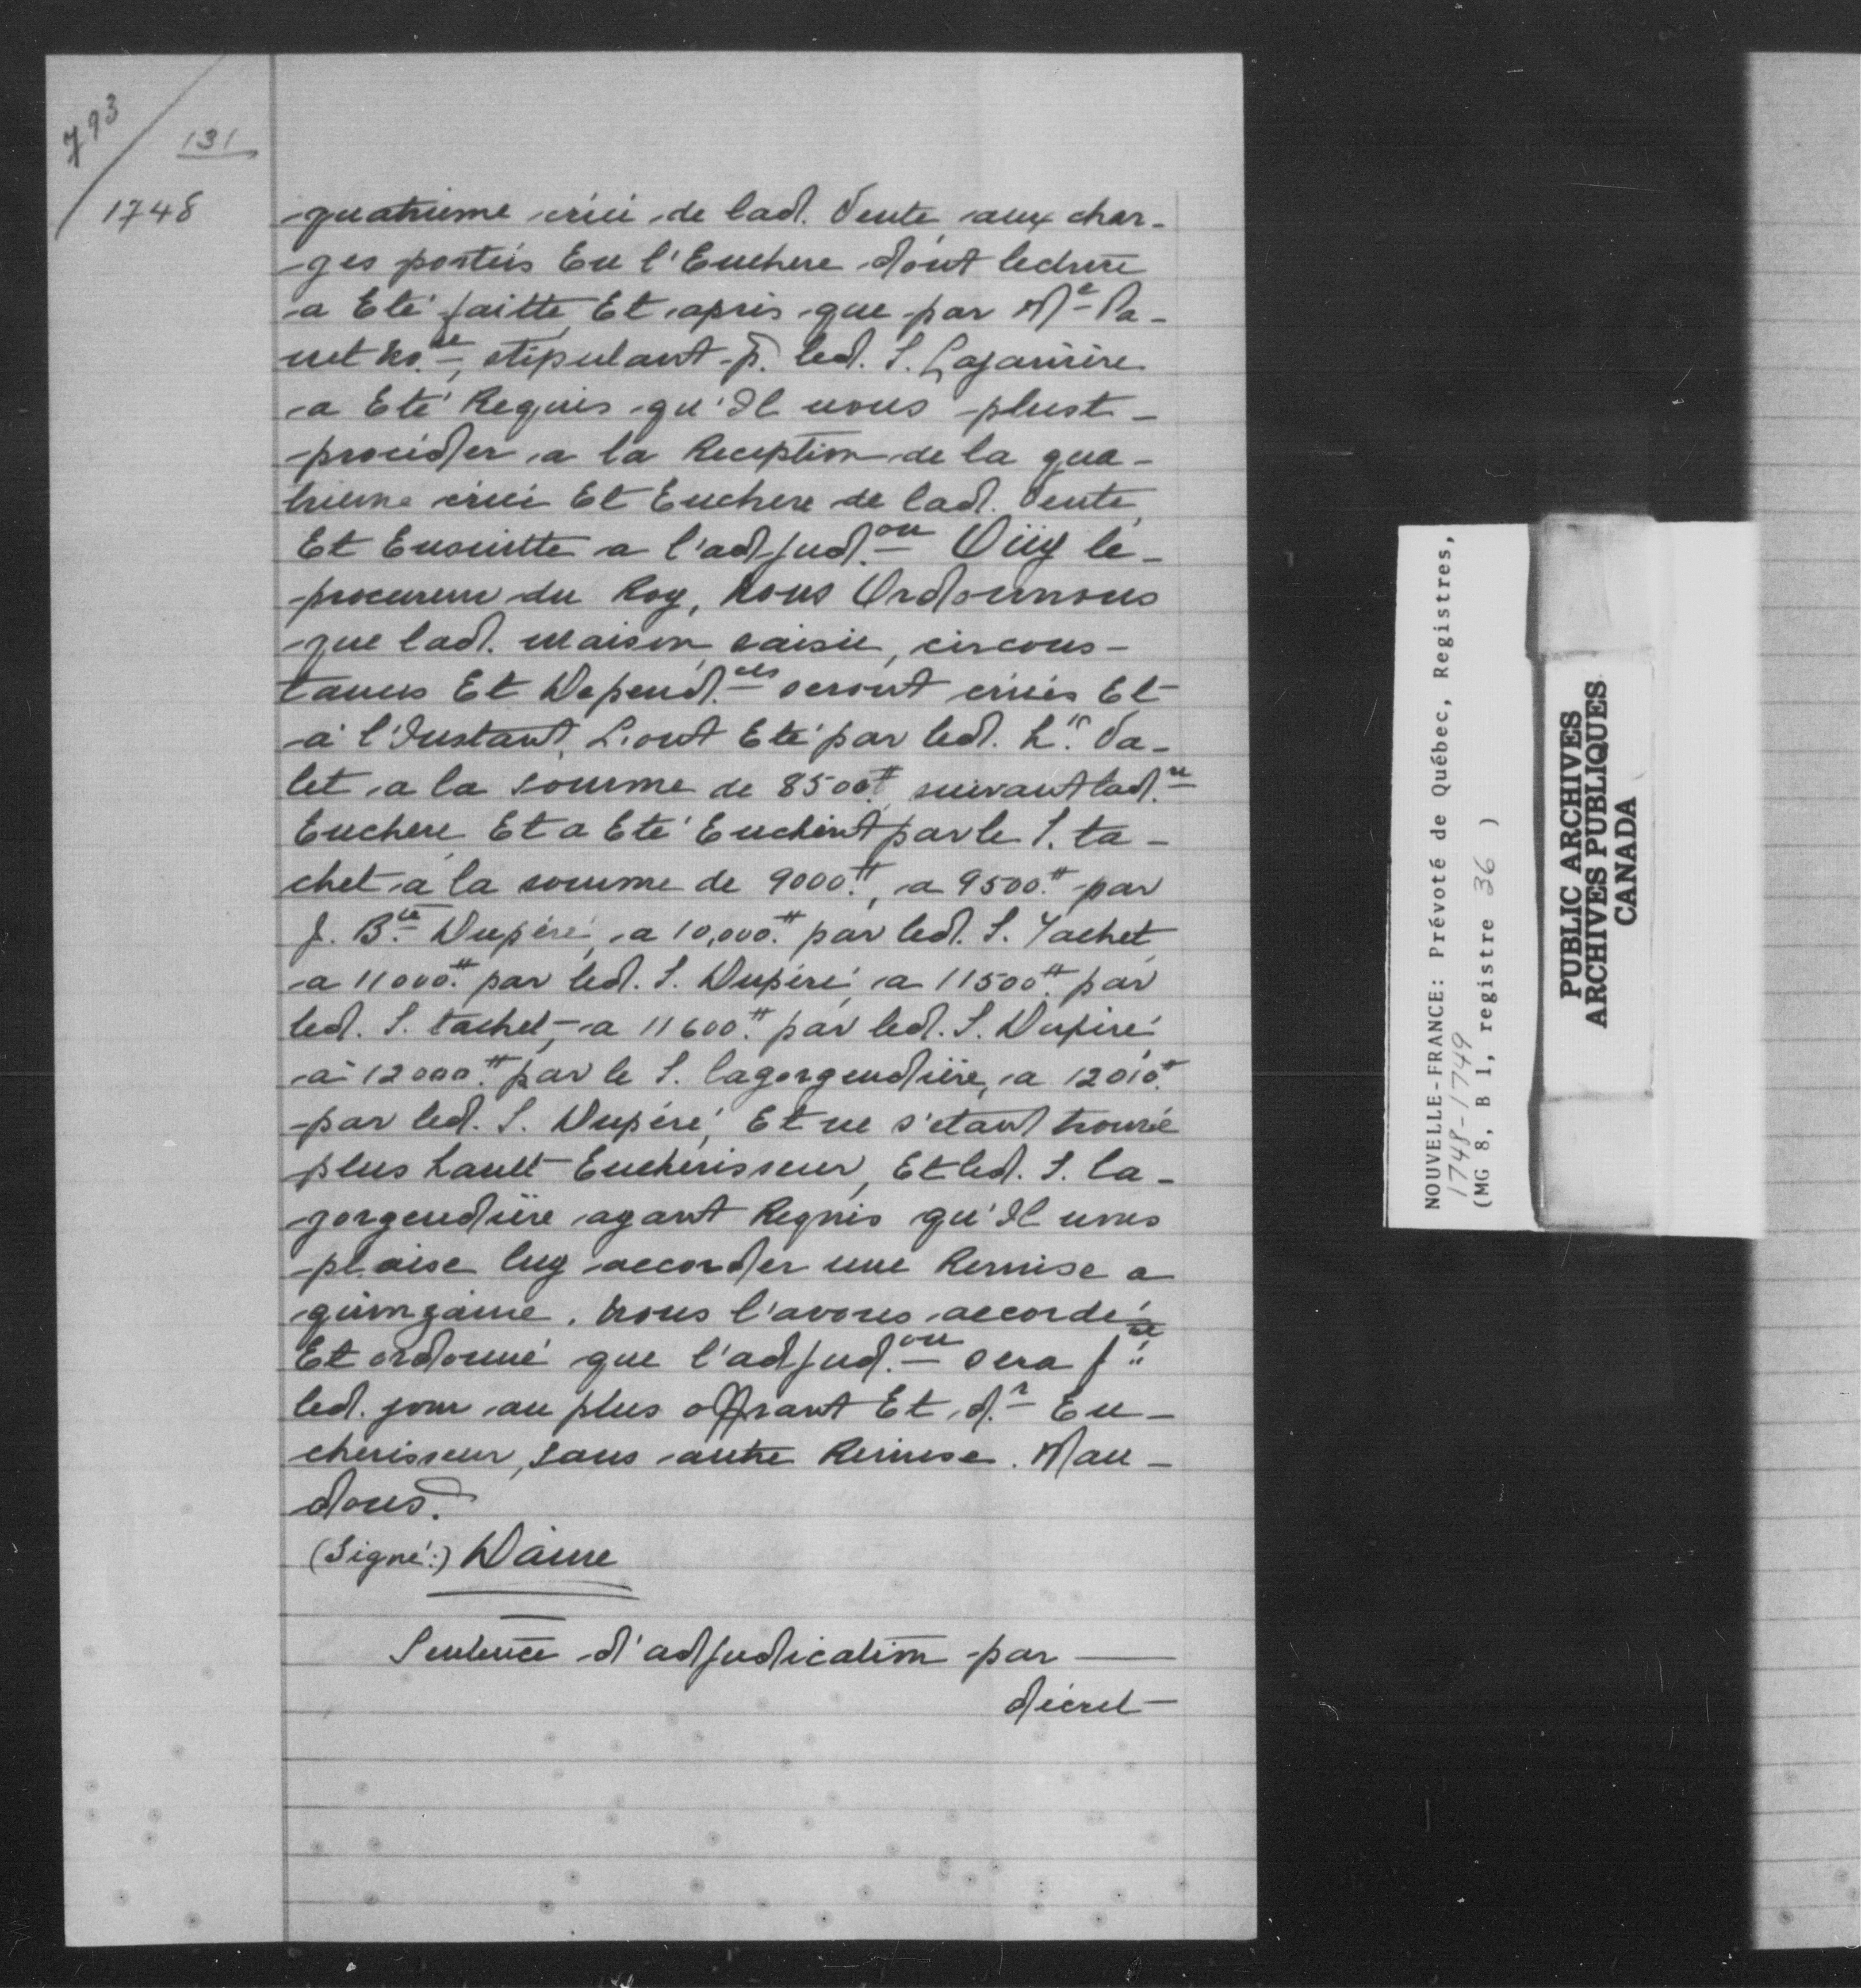 793
131
1748
quatrieme criée de lad. Vente aux char-
ges portées En l'Enchere dont lecture
a Eté faitte, Et après que par Me Pa-
net No.re, stipulant p. led. S. Lajanière
a Eté Requis qu'Il nous plust
procéder a la Reception de la qua-
trieme criée Et Enchere de lad. Vente,
Et Ensuitte a l'adjud.on Oüy le
procureur du Roy, Nous Ordonnons
que lad. maison saisie, circons-
tances Et Depend.ces seront criées Et
à l'Instant, L'ont Eté par led. h.r Va-
let a la somme de 8500.# suivant lad.te
Enchere Et a Eté Encherit par le S. ta-
chet à la somme de 9000.#, a 9500.# par
J. B.te Dupéré, a 10,000.# par led. S. Tachet
a 11000.# par led. S. Dupéré, a 11500.# par
led. S. tachet, a 11600.# par led. S. Dupéré
à 12000.# par le S. lagorgendière, a 12010.#
par led. S. Dupéré, Et ne s'étant trouvé
plus hault Encherisseur, Et led. S. la-
gorgendière ayant Requis qu'Il nous
plaise luy accorder une Remise a
quinzaine. Nous l'avons accordée
Et ordonné que l'adjud.on sera f.te
led. jour au plus offrant Et d.r En-
cherisseur, sans autre Remise. Man-
dons.
(Signé:) Daine
Sentence d'adjudication par
décret
NOUVELLE-FRANCE: Prévoté de Québec, Registres,
1748-1749
(MG 8, B 1, registre 36 )
PUBLIC ARCHIVES
ARCHIVES PUBLIQUES
CANADA